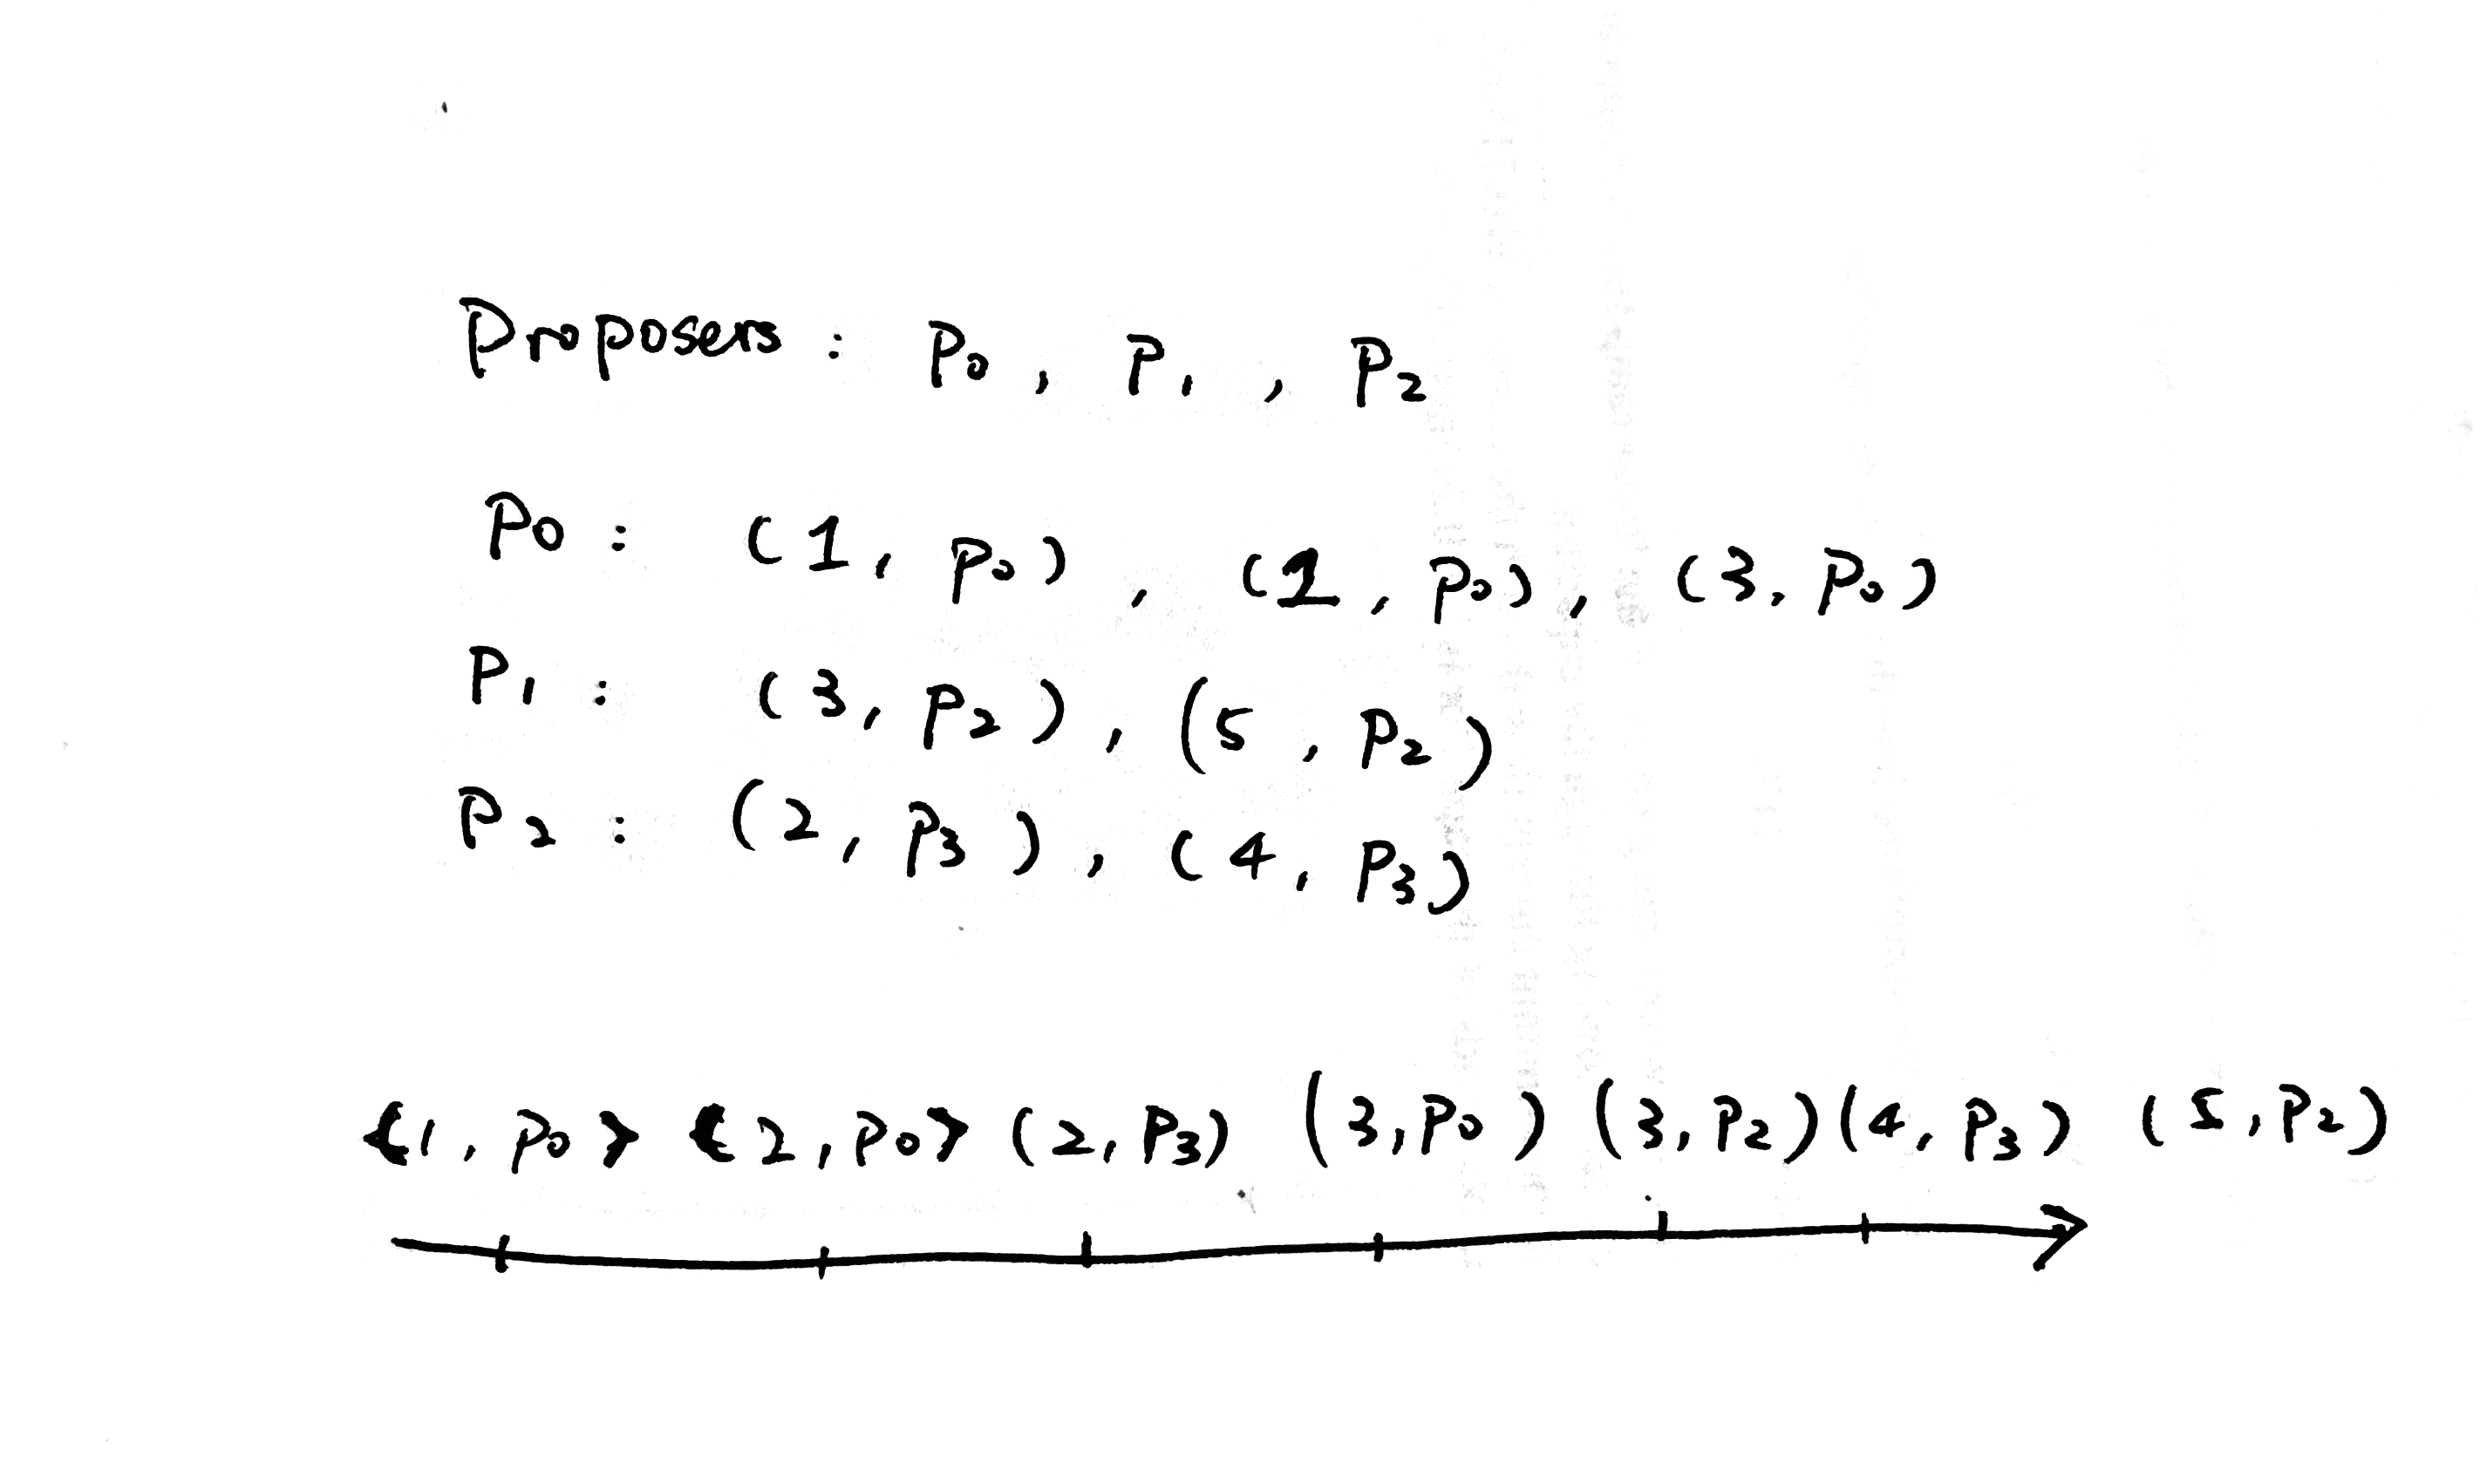 Proposers : P0 , P1 , P2
P0 : (1, P0) , (1, P0) , (3, P0)
P1 : (3, P2) , (5 , P2)
P2 : (2, P3) , (4, P3)
<1, P0> <2, P0> (2, P3) (3, P0) (3, P2) (4, P3) (5, P2)